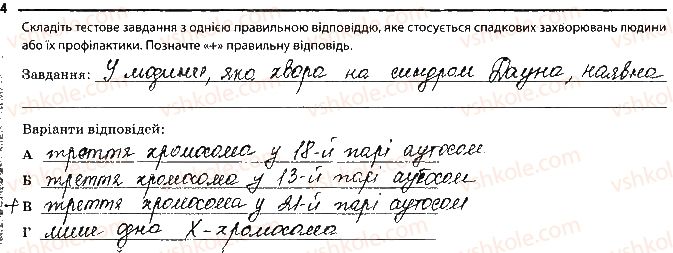 4
Складіть тестове завдання з однією правильною відповіддю, яке стосується спадкових захворювань людини
або їх профілактики. Позначте «+» правильну відповідь.
Завдання: У людини, яка хвора на синдром Дауна, наявна
Варіанти відповідей:
А третя хромосома у 18-й парі аутосом
Б третя хромосома у 13-й парі аутосом
+ В третя хромосома у 21-й парі аутосом
Г лише одна Х-хромосома
vshkole.com